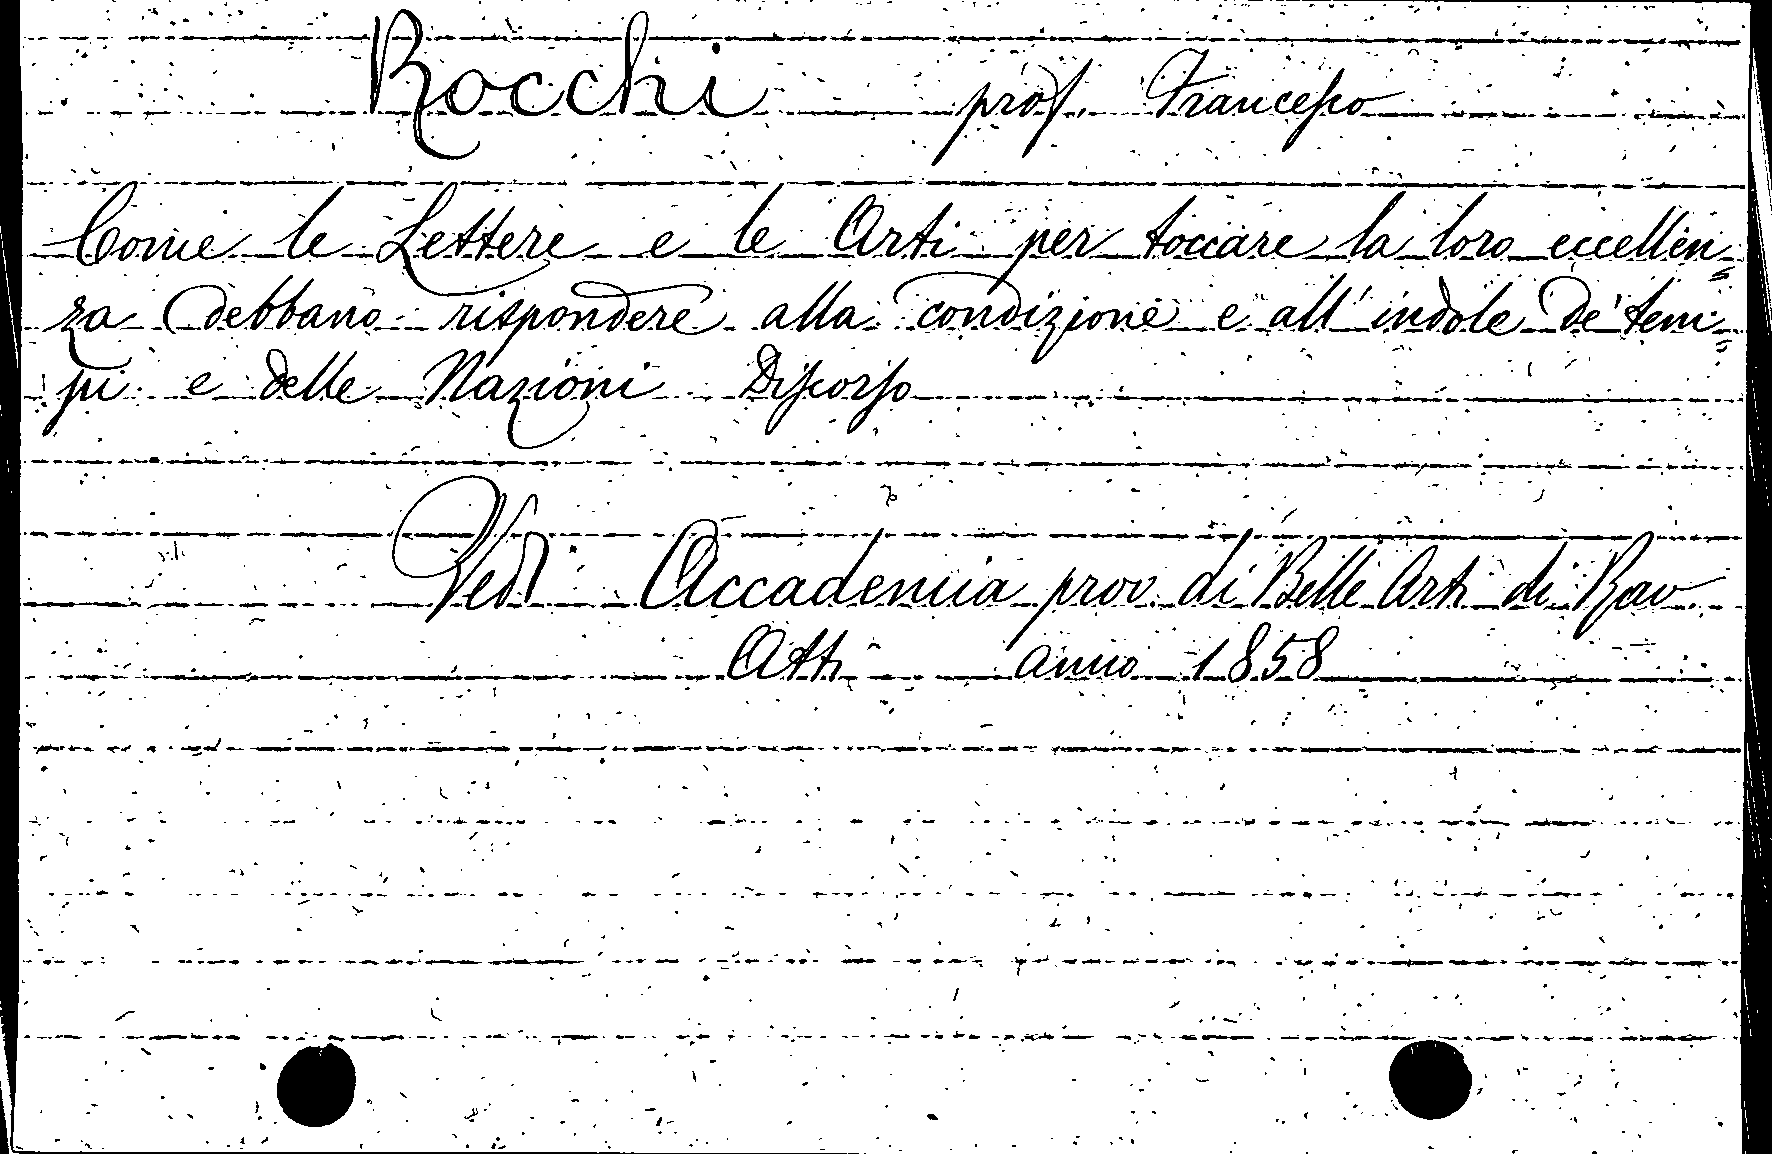 Rocchi prof. Francesco
Come le Lettere e le Arti per toccare la loro eccellen=
za debbano rispondere alla condizione e all'indole de' tem=
pi e delle Nazioni Discorso
Vedi Accademia prov. di Belle Arti di Rav.
Atti anno 1858